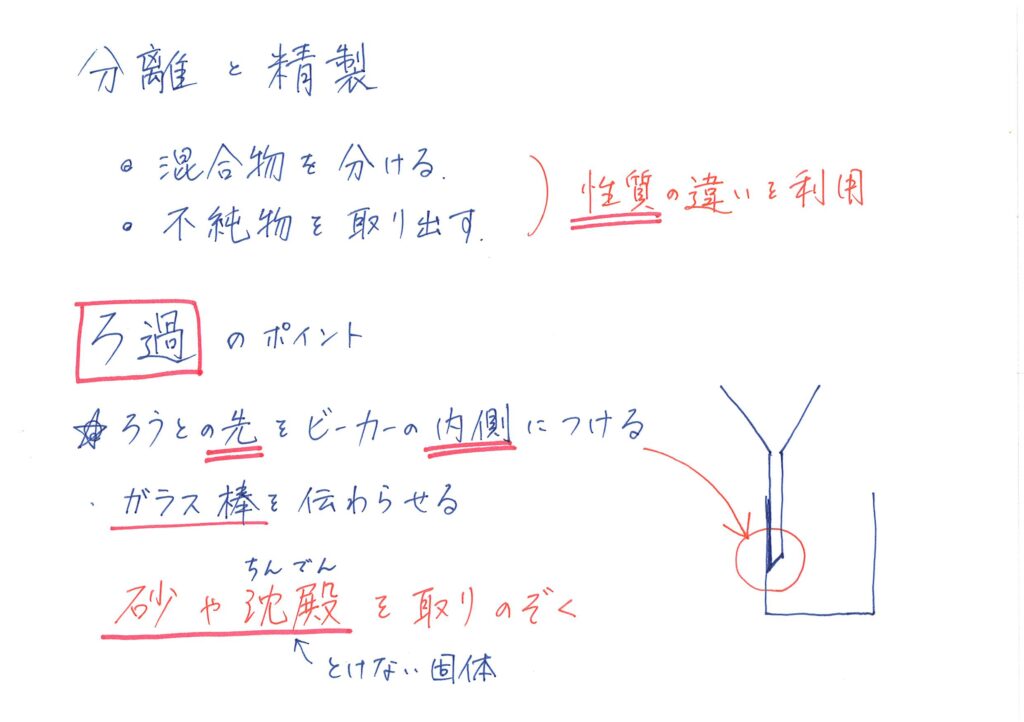 分離と精製
• 混合物を分ける.
• 不純物を取り出す.
) 性質の違いを利用
ろ過のポイント
☆ ろうとの先をビーカーの内側につける
・ガラス棒を伝わらせる
ちんでん
砂や沈殿を取りのぞく
↑とけない固体